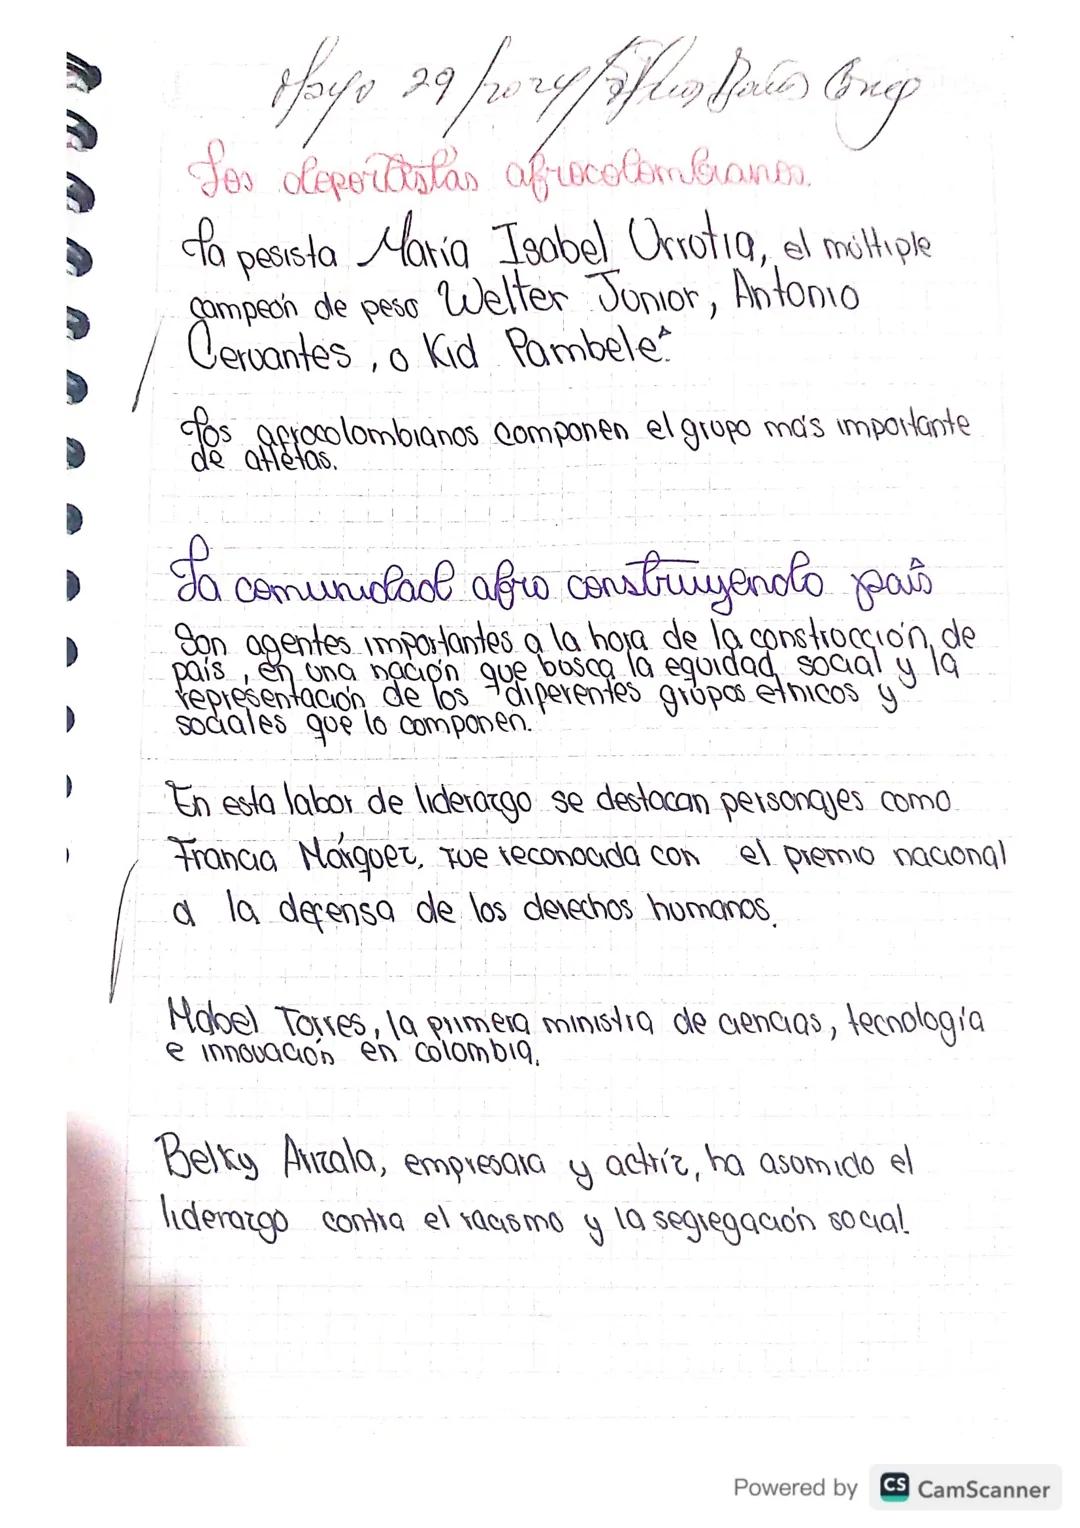 Mayo 29/2024
Los deportistas afrocolombianos.
La pesista María Isabel Urrotia, el múltiple
campeón de peso Welter Junior, Antonio
Cervantes, o Kid Pambelé.
Los afrocolombianos componen el grupo más importante
de atletas.
La comunidad afro construyendo país
Son agentes importantes a la hora de la construcción de
país, en una nación que busca la equidad social y la
representación de los diferentes grupos etnicos y
sociales que lo componen.
En esta labor de liderazgo se destacan personajes como
Francia Márquez, fue reconocida con el premio nacional
a la defensa de los derechos humanos.
Mabel Torres, la primera ministra de ciencias, tecnología
e innovación en colombia.
Belky Arizala, empresaria y actríz, ha asumido el
liderazgo contra el racismo y la segregación social.
Powered by CS CamScanner